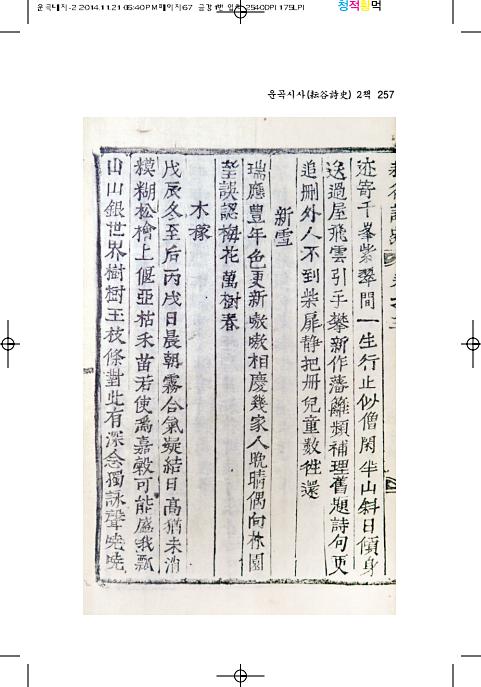 2014.11.21 05:40 PM 페이지67 2540DPI 175LPI
청적황먹
운곡시사(耘谷詩史) 2책 257
迹寄千峯紫翠間一生行止似僧閑半山斜日傾身
送過屋飛雲引手攀新作藩籬頻補理舊題詩句更
追删外人不到柴扉静把册兒童数往還
新雪
瑞應豊年色更新嗷嗷相慶幾家人晩晴偶向林園
望誤認梅花萬樹春
木稼
戊辰冬至后丙戌日晨朝霧合氣凝結日高猶未消
糢糊松檜上偃亞枯禾苗若使爲嘉穀可能盛我瓢
山山銀世界樹樹玉枝條對此有深念獨詠聲嘵嘵